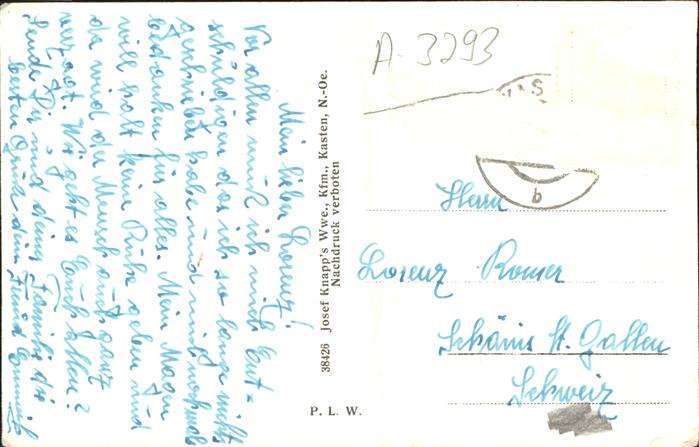 Mein lieber Lorenz!
Vor allem muß ich mich Ent=
schuldigen das ich so lange nicht
geschrieben habe und mich nochmals
bedanken für alles. Mein Magen
will halt keine Ruhe geben und
da wird der Mensch auch ganz
verzagt. Wie geht es Euch allen?
Sende Dir und deine Familie die
besten Grüße dein Freund
38426 Josef Knapp's Wwe., Kfm., Kasten, N.-Oe.
Nachdruck verboten
P. L. W.
A-3293
S
b
Herrn
Lorenz Romer
Schänis St. Gallen
Schweiz